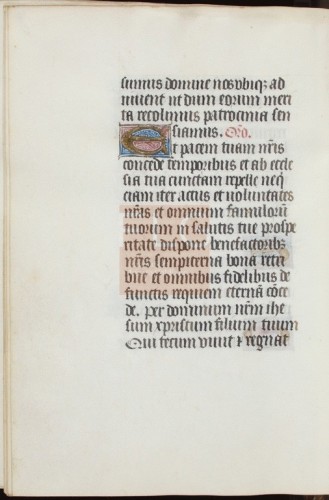 sumus domine nos ubiqȝ ad
iuuent ut dum eorum meri
ta recolimus patrocinia sen
tiamus. Oro.
Et pacem tuam nr̄is
concede temporibus et ab eccle
sia tua cunctam repelle neq̄
ciam iter actus et uoluntates
nr̄as et omnium famulorū
tuorum in salutis tue prospe
ritate dispone benefactoribȝ
nr̄is sempiterna bona retri
bue et omnibus fidelibus de
functis requiem eternā cōce
de. per dominum nr̄m ihe
sum xpristum filium tuum
Qui tecum uiuit et regnat